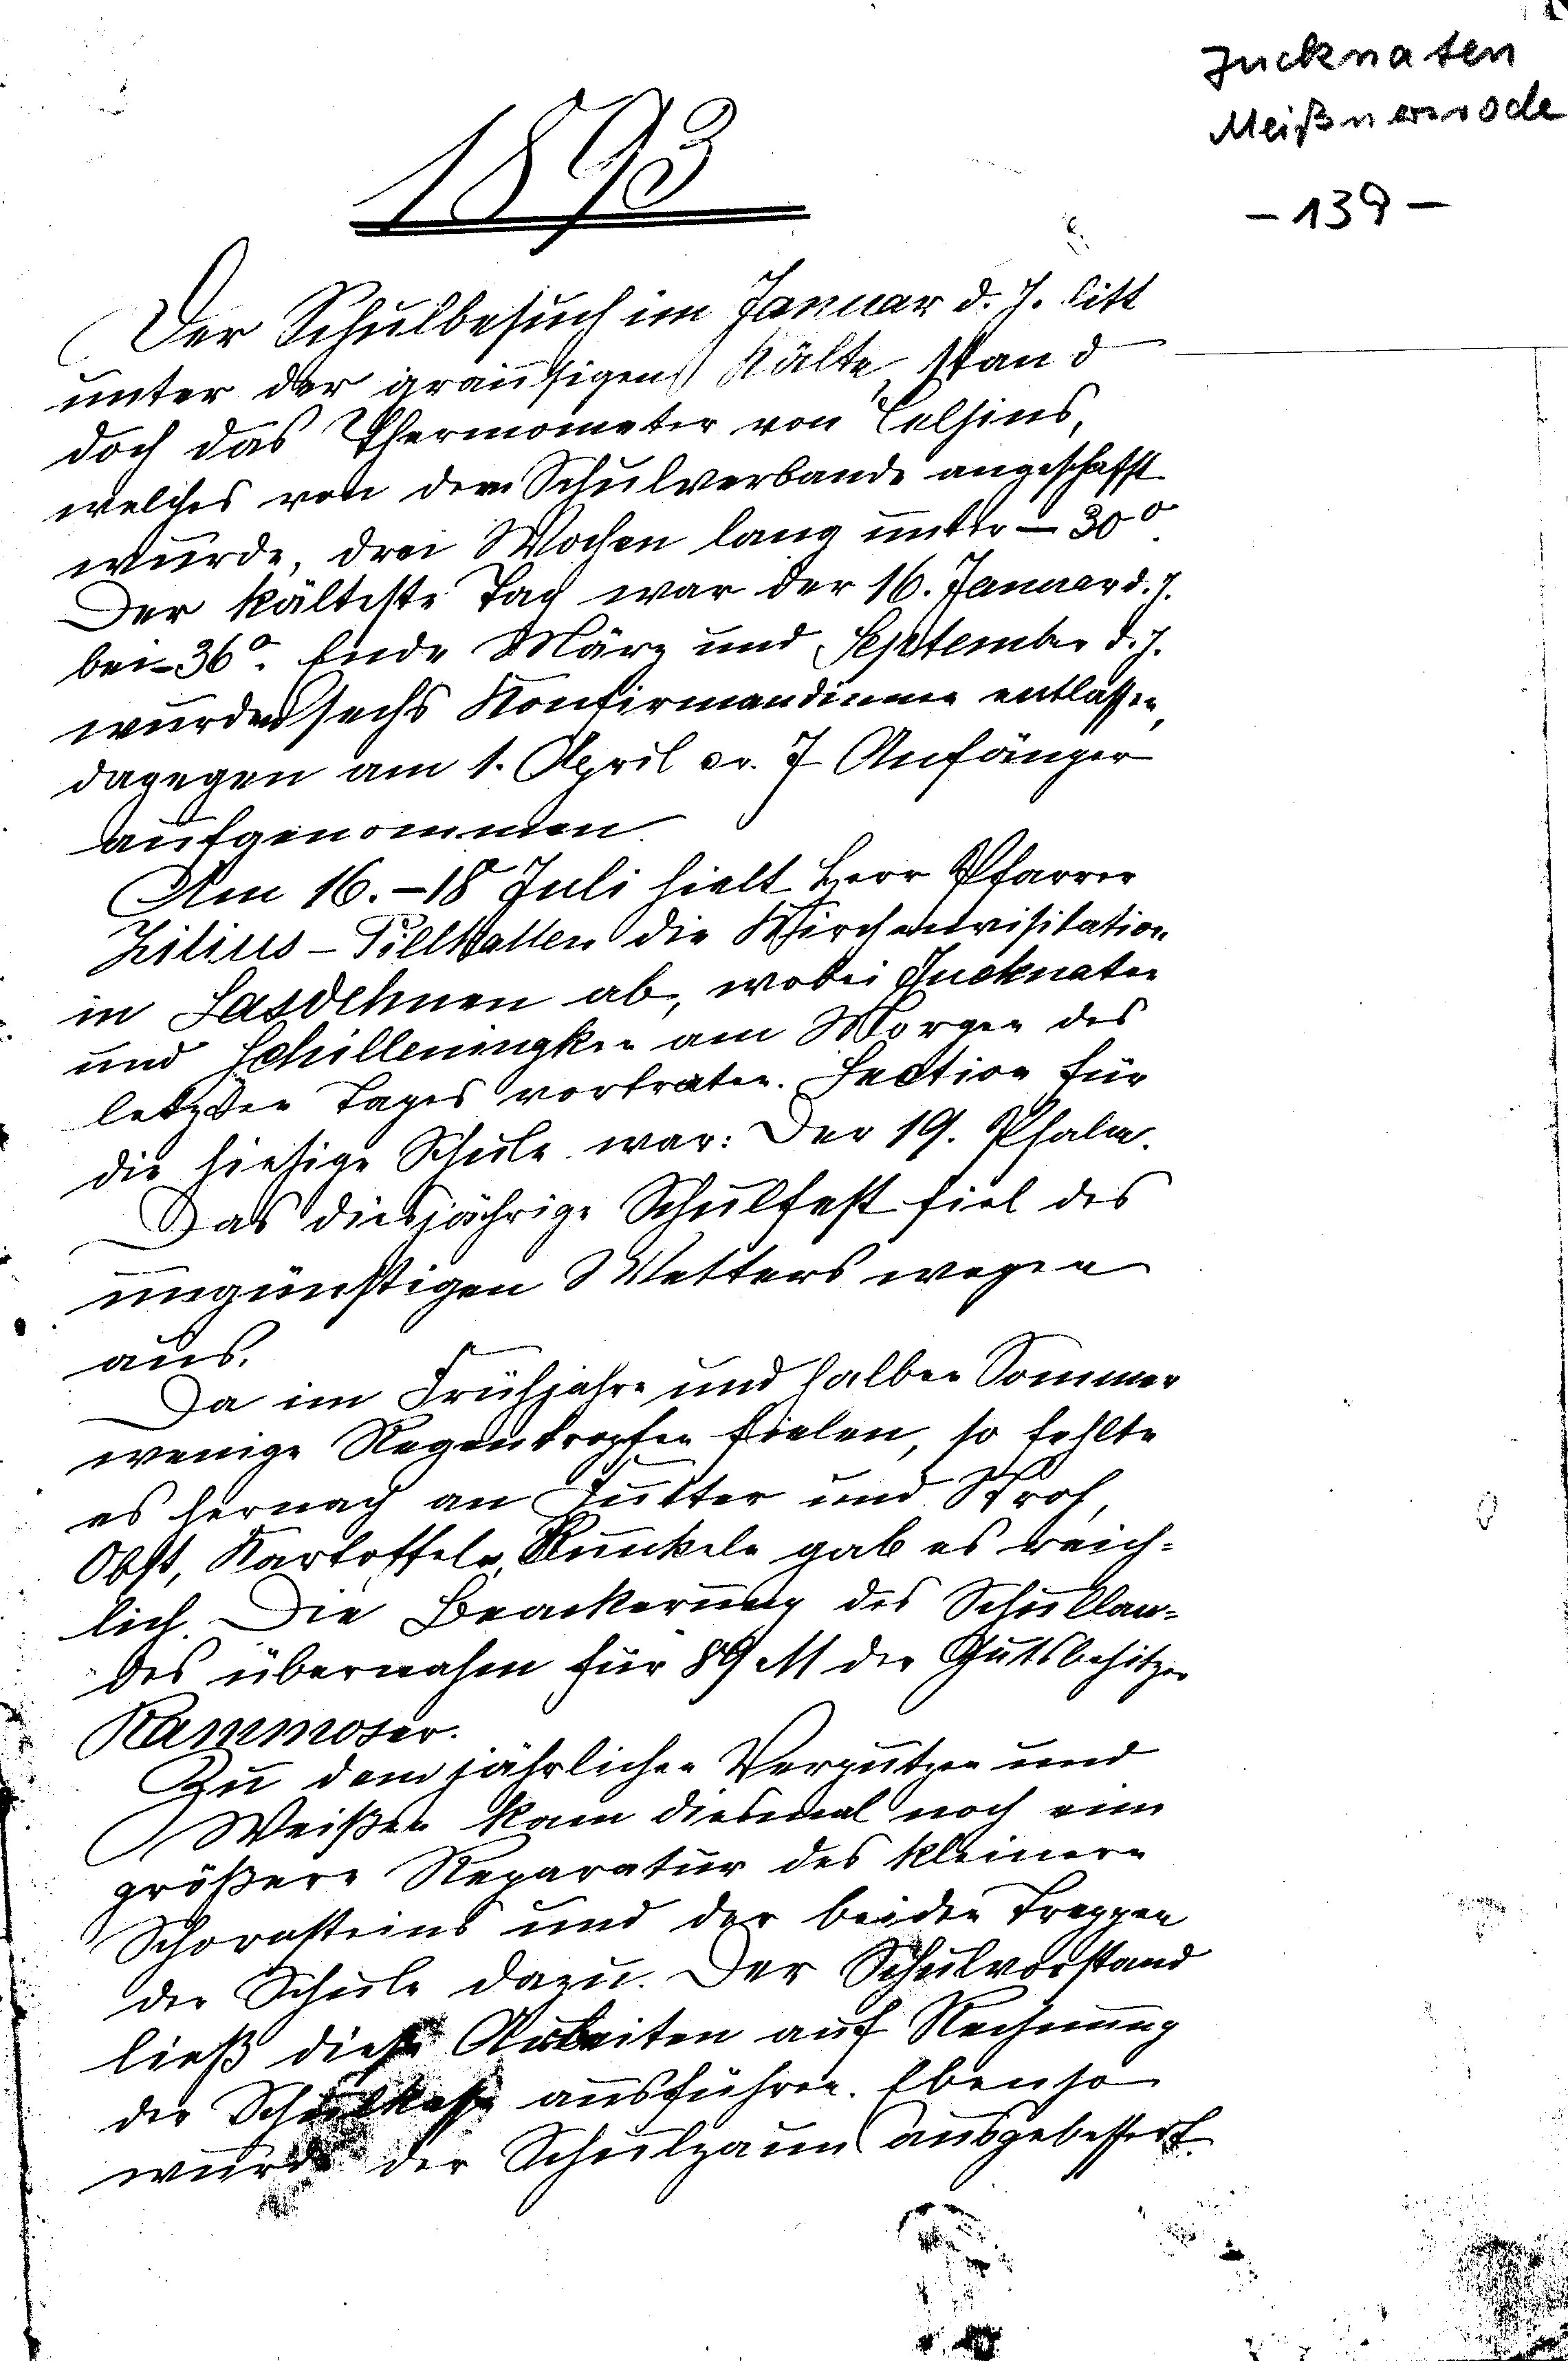 Jucknaten
Meißnersrode
- 139 -
1893
Der Schulbesuch im Januar d. J. litt
unter der grausigen Kälte, stand
doch das Thermometer von Celsius,
welches von dem Schulverbande angeschafft
wurde, drei Wochen lang unter - 30°.
Der kälteste Tag war der 16. Januar d. J.
bei - 36°. Ende März und September d. J.
wurden sechs Konfirmandinnen entlassen,
dagegen am 1. April cr. 7 Anfänger
aufgenommen.
Am 16. - 18 Juli hielt Herr Pfarrer
Zilius - Pillkallen die Kirchenvisitation
in Lasdehnen ab, wobei Jucknaten
und Schilleningken am Morgen des
letzten Tages vortraten. Lection für
die hiesige Schule war: Der 19. Psalm.
Das diesjährige Schulfest fiel des
ungünstigen Wetters wegen
aus.
Da im Frühjahre und halben Sommer
wenige Regentropfen fielen, so fehlte
es hernach an Futter und Stroh,
Obst, Kartoffeln, Runkeln gab es reich-
lich. Die Beackerung des Schullan-
des übernahm für 89 M der Gutsbesitzer
Kammoser.
Zu dem jährlichen Verputzen und
Weißen kam diesmal noch eine
größere Reparatur des kleinern
Schornsteins und der beiden Treppen
der Schule dazu. Der Schulvorstand
ließ diese Arbeiten auf Rechnung
der Schulkasse ausführen. Ebenso
wurde der Schulzaun ausgebessert.